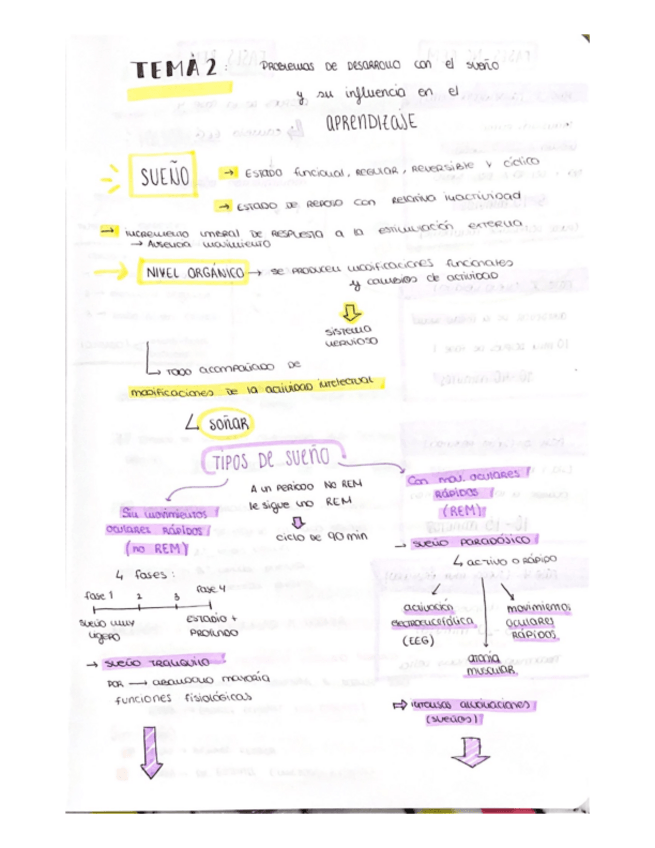 TEMA 2: PROBLEMAS DE DESARROLLO CON EL SUEÑO
y su influencia en el
APRENDIZAJE
SUEÑO
→ ESTADO funcional, REGULAR, REVERSIBLE Y cíclico
→ ESTADO DE REPOSO CON RELATIVA INACTIVIDAD
→ INCREMENTO UMBRAL DE RESPUESTA A LA ESTIMULACIÓN EXTERNA
→ AUSENCIA MOVIMIENTO
→ NIVEL ORGÁNICO → SE PRODUCEN MODIFICACIONES funcionales
y CAMBIOS DE ACTIVIDAD
SISTEMA
NERVIOSO
↳ TODO ACOMPAÑADO DE
MODIFICACIONES DE LA ACTIVIDAD INTELECTUAL
↳ SOÑAR
TIPOS DE SUEÑO
Sin movimientos
oculares RÁPIDOS
(no REM)
A un PERÍODO NO REM
le sigue uno REM
CICLO DE 90 min
Con mov. oculares
RÁPIDOS
(REM)
→ SUEÑO PARADÓJICO
↳ ACTIVO O RÁPIDO
4 fases:
fase 1 2 3 fase 4
SUEÑO MUY
LIGERO
ESTADIO +
PROFUNDO
→ SUEÑO TRANQUILO
POR → ABANDONO MAYORÍA
FUNCIONES FISIOLÓGICAS
ACTIVACIÓN
ELECTROENCEFÁLICA
(EEG)
ATONÍA
MUSCULAR
MOVIMIENTOS
OCULARES
RÁPIDOS
⇨ INTENSAS ALUCINACIONES
(SUEÑOS)